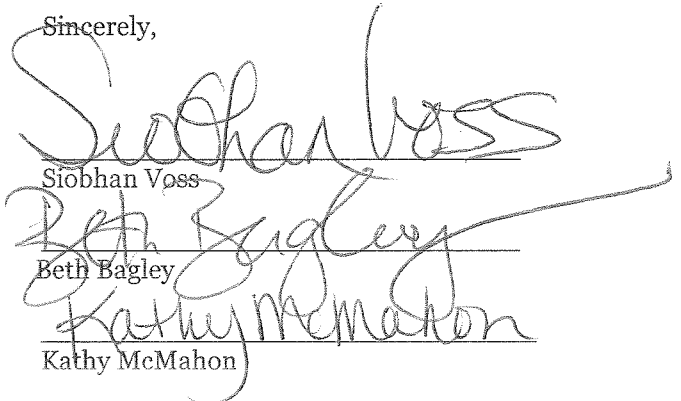 Sincerely,
Siobhan Voss
Siobhan Voss
Beth Bagley
Beth Bagley
Kathy McMahon
Kathy McMahon